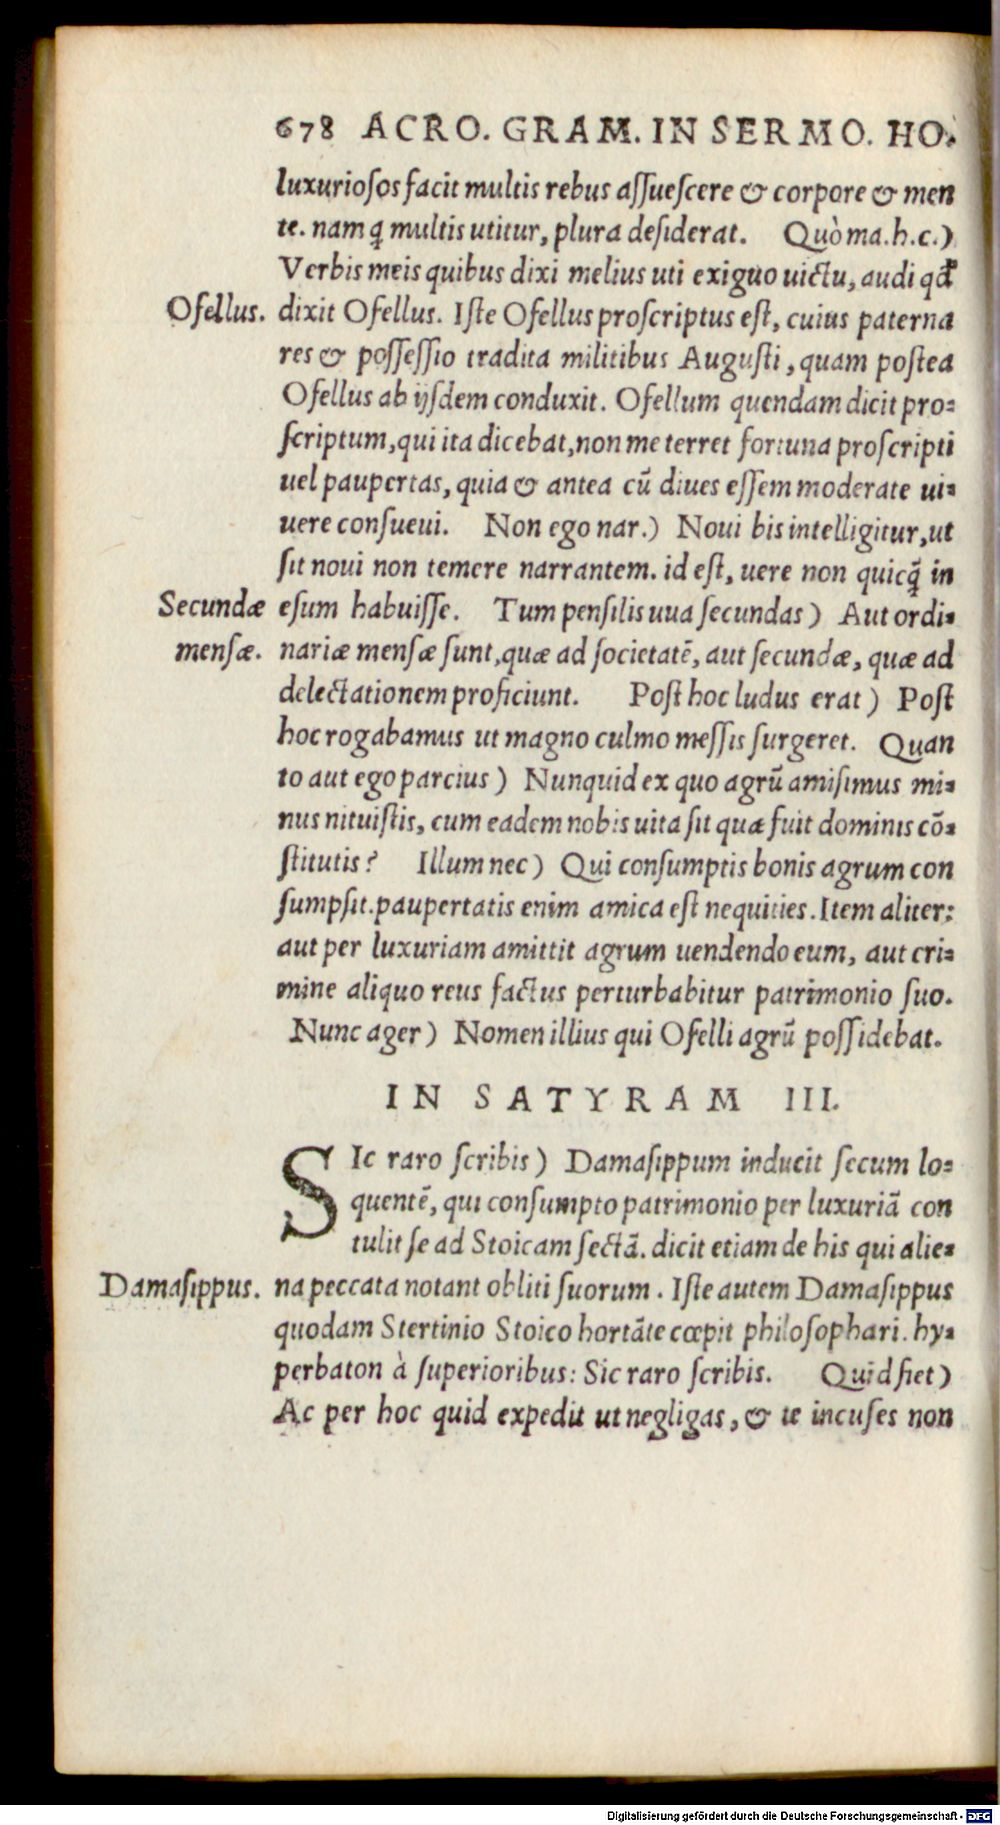 678 ACRO. GRAM. IN SERMO. HO.
luxurioſos facit multis rebus aſſueſcere & corpore & men
te. nam q̃ multis utitur, plura deſiderat. Quò ma. h. c.)
Verbis meis quibus dixi melius uti exiguo uictu, audi qđ
Ofellus. dixit Ofellus. Iſte Ofellus proſcriptus eſt, cuius paterna
res & poſſeſſio tradita militibus Auguſti, quam poſtea
Ofellus ab ijſdem conduxit. Ofellum quendam dicit pro⸗
ſcriptum, qui ita dicebat, non me terret fortuna proſcripti
uel paupertas, quia & antea cũ diues eſſem moderate ui⸗
uere conſueui. Non ego nar.) Noui bis intelligitur, ut
ſit noui non temere narrantem. id eſt, uere non quicq̃ in
Secundæ eſum habuiſſe. Tum penſilis uua ſecundas) Aut ordi⸗
menſæ. nariæ menſæ ſunt, quæ ad ſocietatẽ, aut ſecundæ, quæ ad
delectationem proficiunt. Poſt hoc ludus erat) Poſt
hoc rogabamus ut magno culmo meſſis ſurgeret. Quan
to aut ego parcius) Nunquid ex quo agrũ amiſimus mi⸗
nus nituiſtis, cum eadem nobis uita ſit quæ fuit dominis cõ⸗
ſtitutis? Illum nec) Qui conſumptis bonis agrum con
ſumpſit. paupertatis enim amica eſt nequities. Item aliter:
aut per luxuriam amittit agrum uendendo eum, aut cri⸗
mine aliquo reus factus perturbabitur patrimonio ſuo.
Nunc ager) Nomen illius qui Ofelli agrũ poſſidebat.
IN SATYRAM III.
SIc raro ſcribis) Damaſippum inducit ſecum lo⸗
quentẽ, qui conſumpto patrimonio per luxuriã con
tulit ſe ad Stoicam ſectã. dicit etiam de his qui alie⸗
Damaſippus. na peccata notant obliti ſuorum. Iſte autem Damaſippus
quodam Stertinio Stoico hortãte cœpit philoſophari. hy⸗
perbaton à ſuperioribus: Sic raro ſcribis. Quid fiet)
Ac per hoc quid expedit ut negligas, & te incuſes non
Digitalisierung gefördert durch die Deutsche Forschungsgemeinschaft - DFG